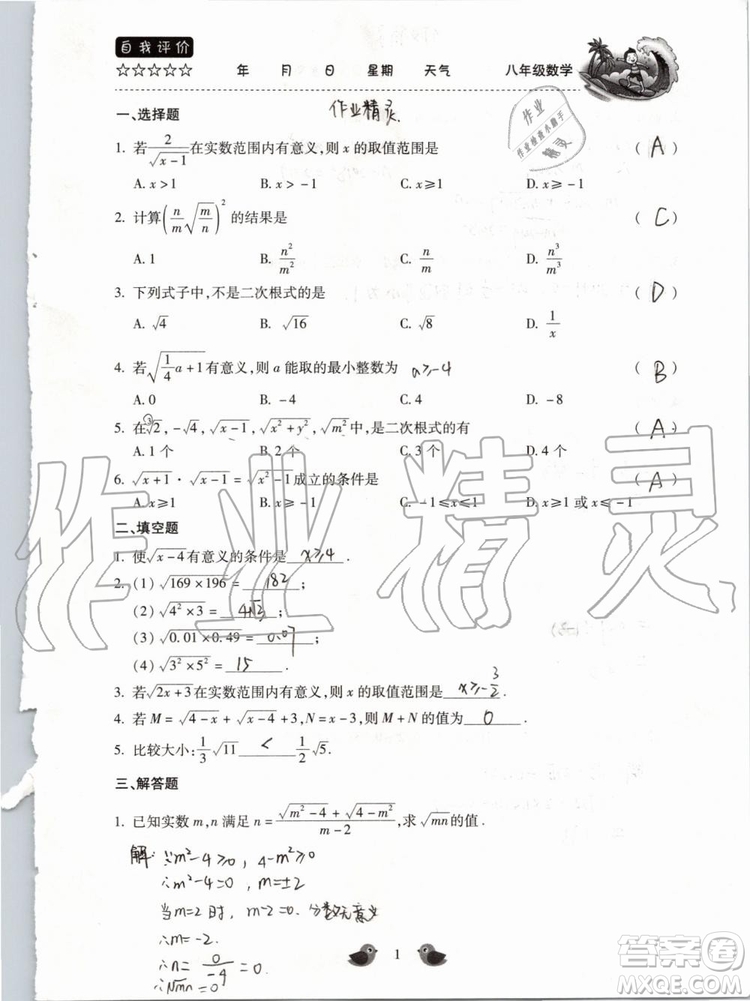 自我评价
☆☆☆☆☆ 年 月 日 星期 天气 八年级数学
一、选择题 作业精灵.
作业
作业检查小助手
精灵
1. 若2/√(x-1)在实数范围内有意义,则 x 的取值范围是 ( A )
A. x>1 B. x>-1 C. x≥1 D. x≥-1
2. 计算(n/m √(m/n))² 的结果是 ( C )
A. 1 B. n²/m² C. n/m D. n³/m³
3. 下列式子中,不是二次根式的是 ( D )
A. √4 B. √16 C. √8 D. 1/x
4. 若√(1/4 a+1)有意义,则 a 能取的最小整数为 a≥-4 ( B )
A. 0 B. -4 C. 4 D. -8
5. 在∛2,-√4,√(x-1),√(x²+y²),√(m²)中,是二次根式的有 ( A )
A. 1 个 B. 2 个 C. 3 个 D. 4 个
6. √(x+1)·√(x-1)=√(x²-1)成立的条件是 ( A )
A. x≥1 B. x≥-1 C. -1≤x≤1 D. x≥1 或x≤-1
二、填空题
1. 使√(x-4)有意义的条件是 x≥4 .
2. (1) √(169×196) = 182 ;
(2) √(4²×3) = 4√3 ;
(3) √(0.01×0.49) = 0.07 ;
(4) √(3²×5²) = 15 .
3. 若√(2x+3)在实数范围内有意义,则 x 的取值范围是 x≥-3/2 .
4. 若 M=√(4-x)+√(x-4)+3,N=x-3,则 M+N 的值为 0 .
5. 比较大小:1/3 √11 < 1/2 √5.
三、解答题
1. 已知实数 m,n 满足 n=(√(m²-4)+√(4-m²))/(m-2),求 √(mn) 的值.
解: ∵m²-4≥0, 4-m²≥0
∴m²-4=0, m=±2
当m=2时, m-2=0. 分数无意义
∴m=-2.
∴n=0/-4=0.
∴√mn=0.
1
作业精灵
答案圈
MXQE.COM